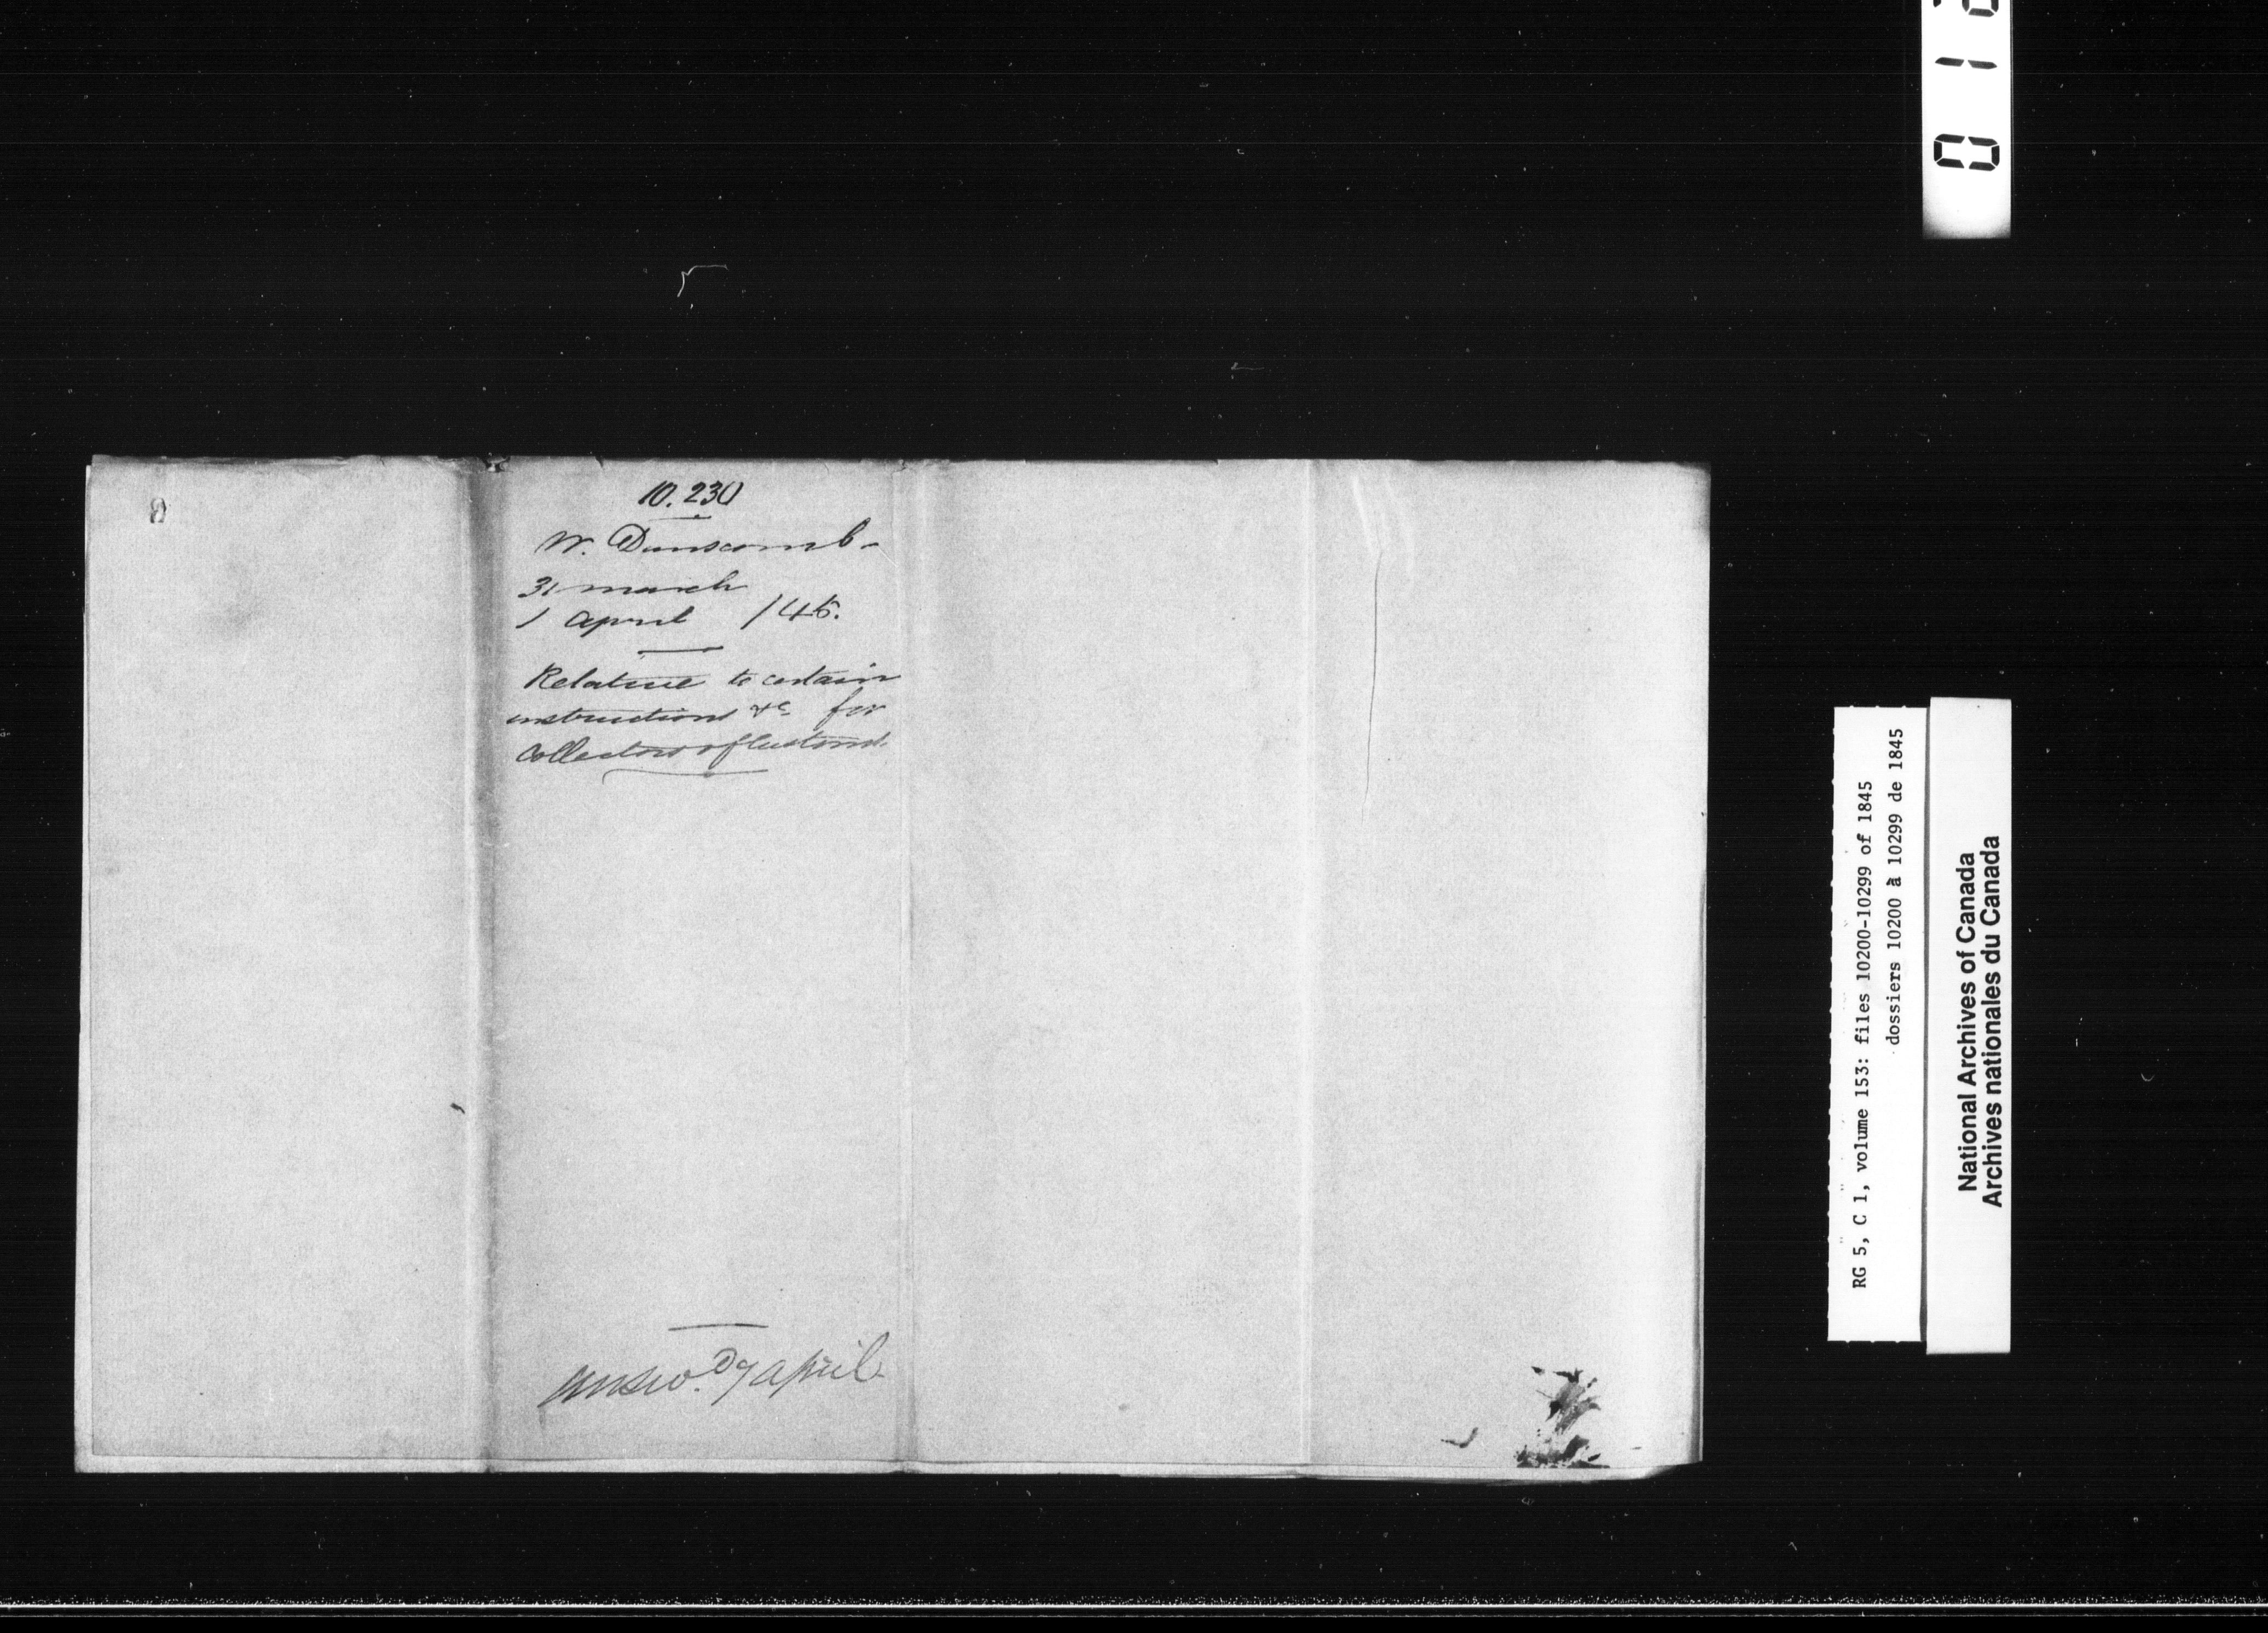 10.230
W. Dunscomb-
31 march
1 April /45.
Relative to certain
instructions &c. for
Collectors of Customs.
Answ.D 7 April
RG 5, C 1, volume 153: files 10200-10299 of 1845
dossiers 10200 à 10299 de 1845
National Archives of Canada
Archives nationales du Canada